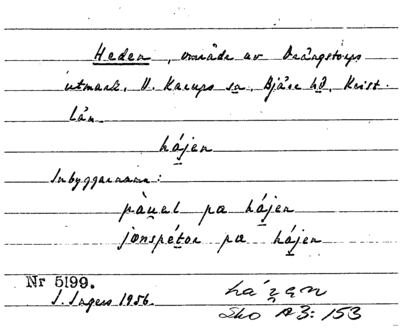 Heden, område av Drängstorps
utmark, V. Karups sn, Bjäre hd, Krist.
län.
hájen
Inbyggarnamn:
pàuel pa hájen
jønspétor pa hájen
Nr 5199.
I. Ingers 1956.
Sko A3: 153